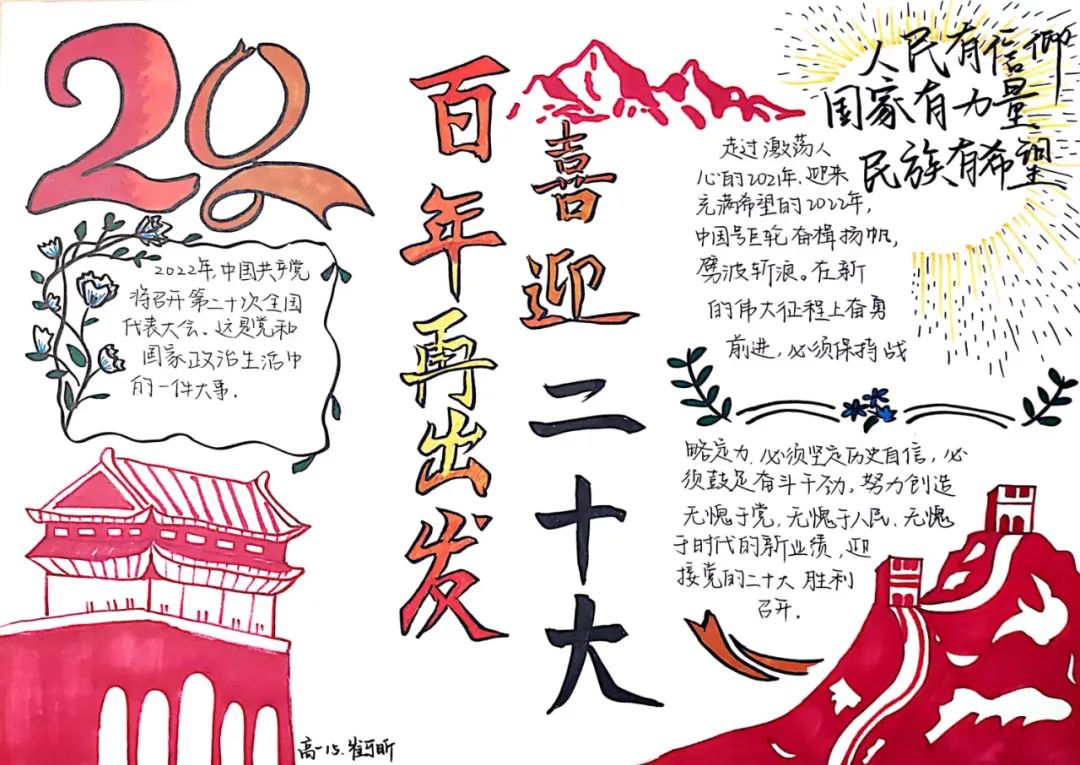 20
2022年,中国共产党
将召开第二十次全国
代表大会、这是党和
国家政治生活中
的一件大事.
百年再出发
喜迎二十大
人民有信仰
国家有力量
民族有希望
走过激荡人
心的2021年,迎来
充满希望的2022年,
中国号巨轮奋楫扬帆,
劈波斩浪。在新
的伟大征程上奋勇
前进,必须保持战
略定力,必须坚定历史自信,必
须鼓足奋斗干劲,努力创造
无愧于党,无愧于人民、无愧
于时代的新业绩,迎
接党的二十大胜利
召开.
高一15.